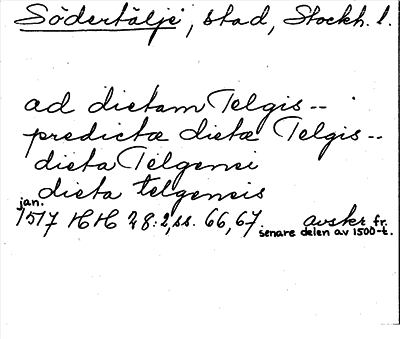 Södertälje, stad, Stockh. l.
ad dietam Telgis --
predictæ dietæ Telgis --
dieta Telgensi
dieta telgensis
jan.
1517 HH 28:2, ss. 66, 67. avskr fr.
senare delen av 1500-t.